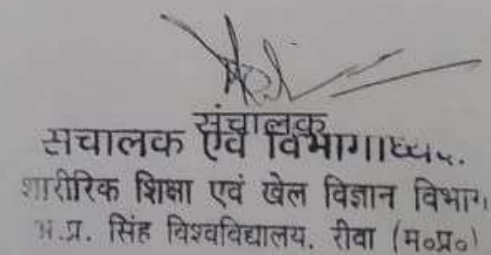 संचालक
संचालक एवं विभागाध्यक्ष
शारीरिक शिक्षा एवं खेल विज्ञान विभाग
अ.प्र. सिंह विश्वविद्यालय, रीवा (म०प्र०)